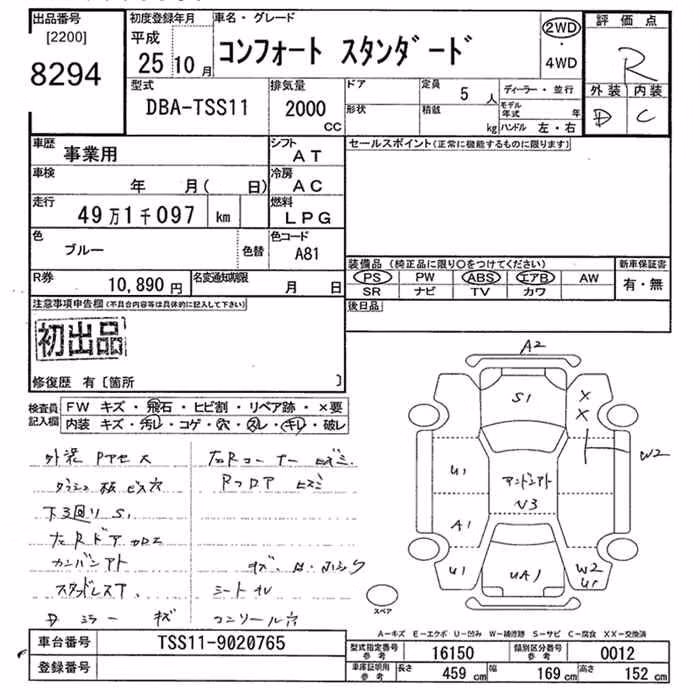 出品番号 初度登録年月 車名・グレード 2WD 評価点
[2200] 平成 コンフォート スタンダード ・ R
8294 25 10月 4WD 外装 内装
型式 排気量 ドア 定員 5人 ディーラー・並行 D C
DBA-TSS11 2000 CC 形状 積載 kg モデル年式 年
ハンドル 左・右
車歴 事業用 シフト AT セールスポイント(正常に機能するものに限ります)
車検 年 月( 日) 冷房 AC
走行 49万1千097 km 燃料 LPG
色 ブルー 色替 色コード A81
装備品 (純正品に限り○をつけてください) 新車保証書
R券 10,890円 名変通知期限 月 日 PS PW ABS エアB AW 有・無
SR ナビ TV カワ
注意事項申告欄(不具合内容等は具体的に記入して下さい) 後日品
初出品
修復歴 有〔箇所 〕
検査員記入欄 FW キズ・飛石・ヒビ割・リペア跡・×要
内装 キズ・汚レ・コゲ・穴・スレ・キレ・破レ
外装 Pアセス 左Rコーナー
Rフロア
下3回り S1
左Rドア
カンバンアト
スタッドレスT シート
ミラー キズ コンソール穴
A2
S1 X
X
W2
U1 アンドンアト
V3
A1
U1 UA1 W2
U1
スペア
A-キズ E-エクボ U-凹み W-補修跡 S-サビ C-腐食 XX-交換済
車台番号 TSS11-9020765 型式指定番号 参考 16150 類別区分番号 参考 0012
登録番号 車庫証明用 参考 長さ 459 cm 幅 169 cm 高さ 152 cm